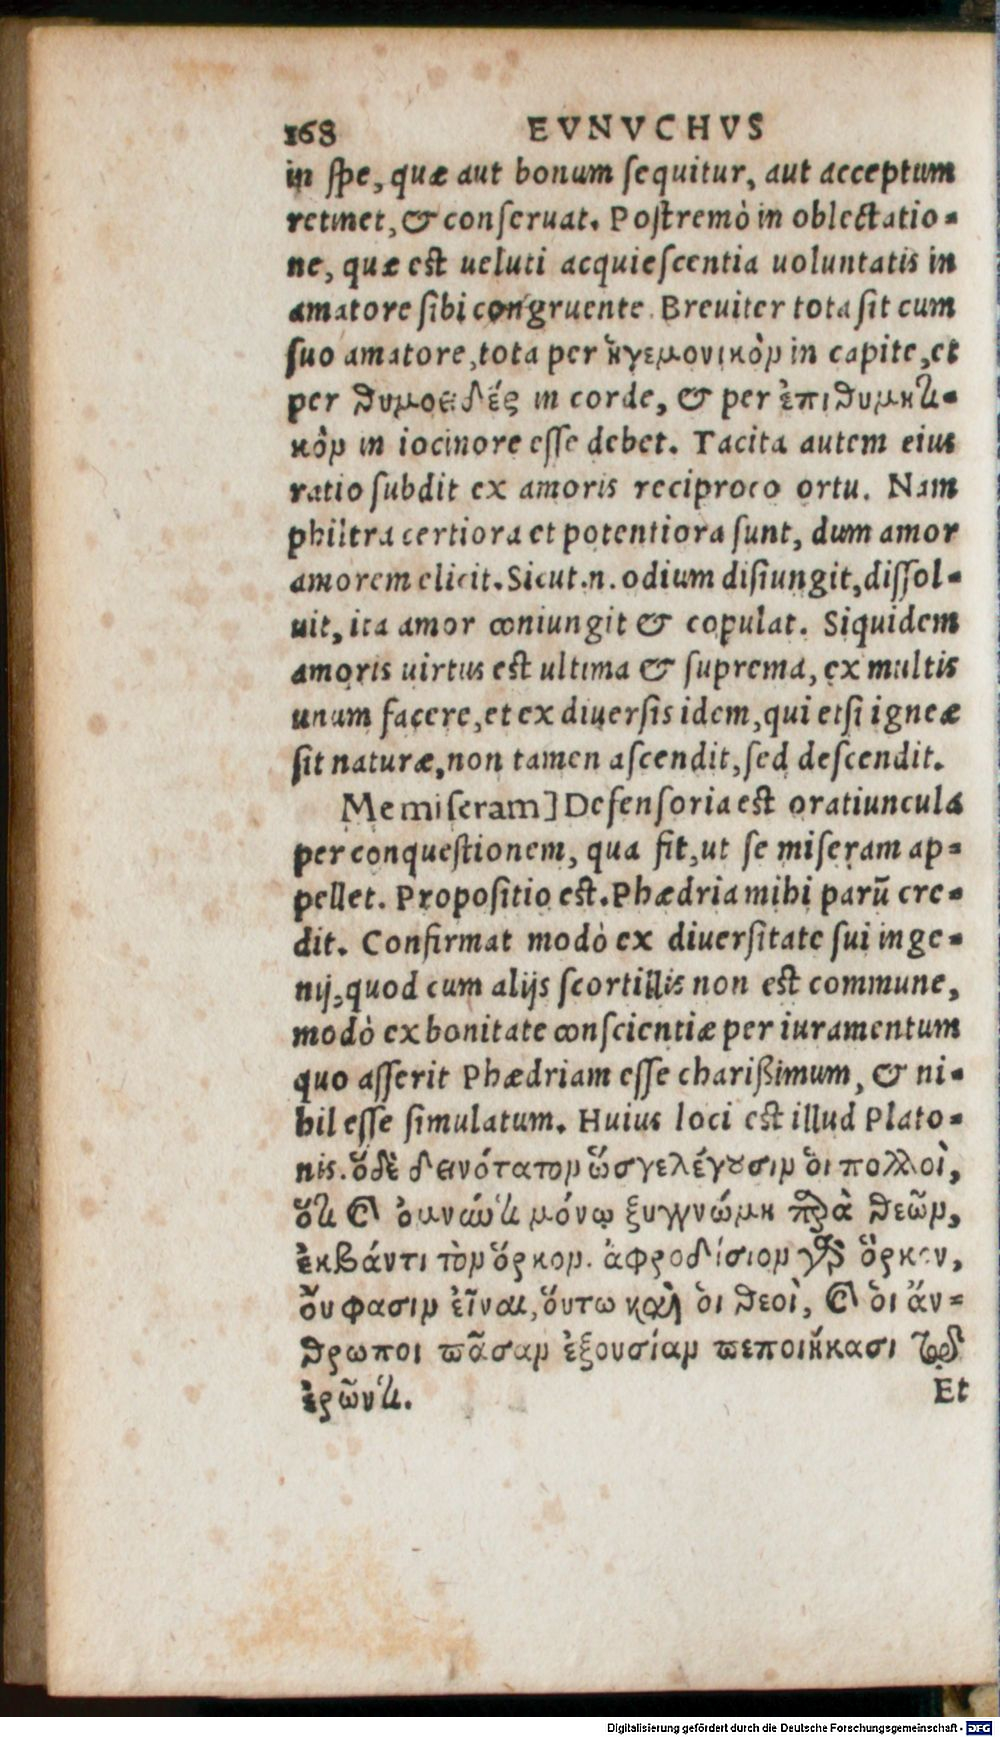 168 EVNVCHVS
in spe, quæ aut bonum sequitur, aut acceptum
retinet, & conseruat. Postremò in oblectatio-
ne, quæ est ueluti acquiescentia uoluntatis in
amatore sibi congruente. Breuiter tota sit cum
suo amatore, tota per ἡγεμονικὸν in capite, et
per θυμοειδές in corde, & per ἐπιθυμητι-
κὸν in iocinore esse debet. Tacita autem eius
ratio subdit ex amoris reciproco ortu. Nam
philtra certiora et potentiora sunt, dum amor
amorem elicit. Sicut.n. odium disiungit, dissol-
uit, ita amor coniungit & copulat. Siquidem
amoris uirtus est ultima & suprema, ex multis
unum facere, et ex diuersis idem, qui etsi igneæ
sit naturæ, non tamen ascendit, sed descendit.
Me miseram] Defensoria est oratiuncula
per conquestionem, qua fit, ut se miseram ap-
pellet. Propositio est. Phædria mihi parū cre-
dit. Confirmat modò ex diuersitate sui inge-
nij, quod cum alijs scortillis non est commune,
modò ex bonitate conscientiæ per iuramentum
quo asserit Phædriam esse charißimum, & ni-
hil esse simulatum. Huius loci est illud Plato-
nis. ὅδὲ δεινότατον ὥσγε λέγουσιν ὁι πολλοὶ,
ὅτι καὶ ὀμνύντι μόνῳ ξυγγνώμη παρὰ θεῶν,
ἐκβάντι τὸν ὅρκον. ἀφροδίσιον γὰρ ὅρκον,
ὄυ φασιν εἶναι, ὅυτω καὶ ὁι θεοὶ, καὶ ὁι ἄν-
θρωποι πᾶσαν ἐξουσίαν πεποιήκασι τῷ
ἐρῶντι.
Et
Digitalisierung gefördert durch die Deutsche Forschungsgemeinschaft - DFG